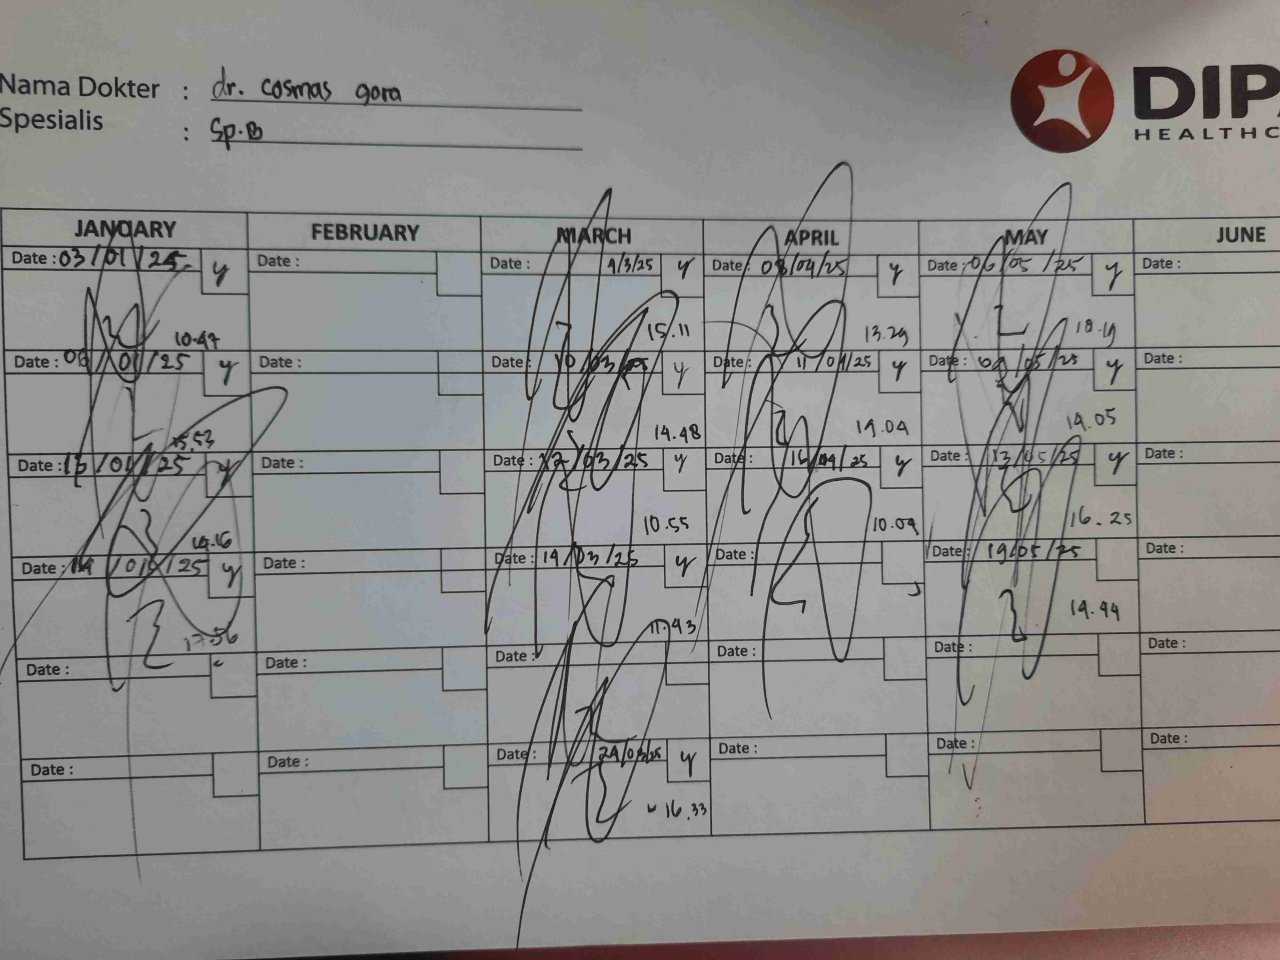 Nama Dokter : dr. cosmas gora
Spesialis : Sp.B
DIPA
HEALTHC
JANUARY FEBRUARY MARCH APRIL MAY JUNE
Date : 03/01/25 y Date : Date : 9/3/25 y Date : 08/04/25 y Date : 06/05/25 y Date :
10.47 15.11 13.29 18.19
Date : 06/01/25 y Date : Date : 10/03/25 y Date : 11/04/25 y Date : 09/05/25 y Date :
15.53 14.48 19.04 19.05
Date : 13/01/25 y Date : Date : 12/03/25 y Date : 16/04/25 y Date : 13/05/25 y Date :
19.16 10.55 10.09 16.25
Date : /01/25 y Date : Date : 19/03/25 y Date : Date : 19/05/25 Date :
17.56 11.43 14.44
Date : Date : Date : Date : Date : Date :
Date : Date : Date : 24/03/25 y Date : Date : Date :
16.33